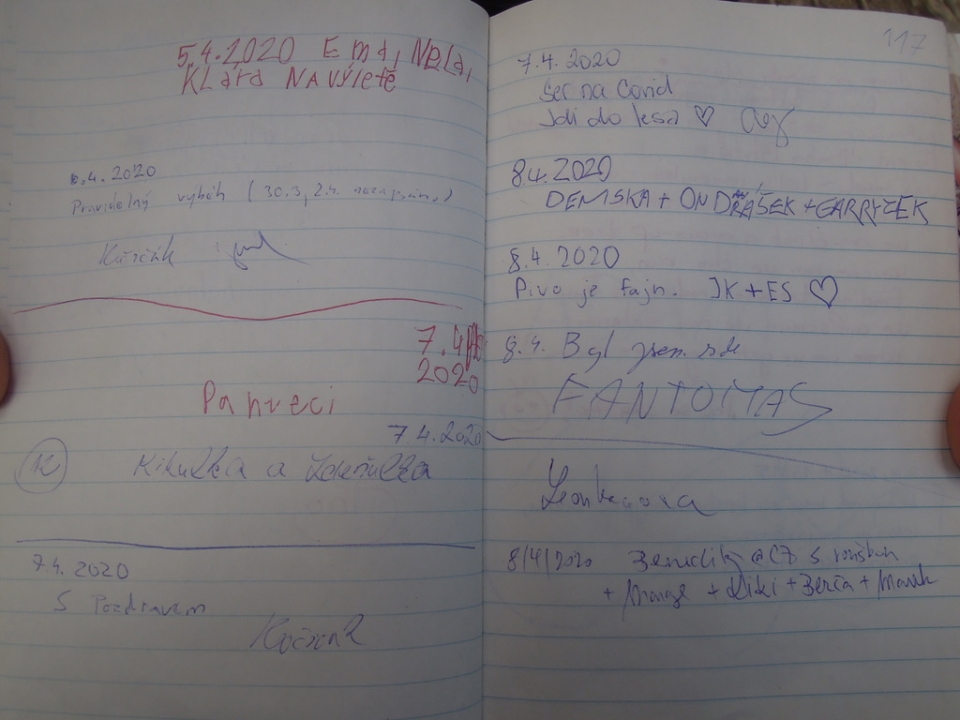 5.4.2020 Ema, Nela,
KLára NA výletě
6.4.2020
Pravidelný výběh (30.3, 2.4. nezapsáno)
7.4.
2020
Pahreci
7.4.2020
12 Kikulka a
7.4.2020
S Pozdravem
117
7.4.2020
Ser na Covid
Jdi do lesa ♡
8.4.2020
DEMSKA + ONDRÁŠEK + GARRYZEK
8.4.2020
Pivo je fajn. JK+ES ♡
8.4. Byl jsem zde
FANTOMAS
8/4/2020 @CZ S
+ + Kiki + Berča + Marek